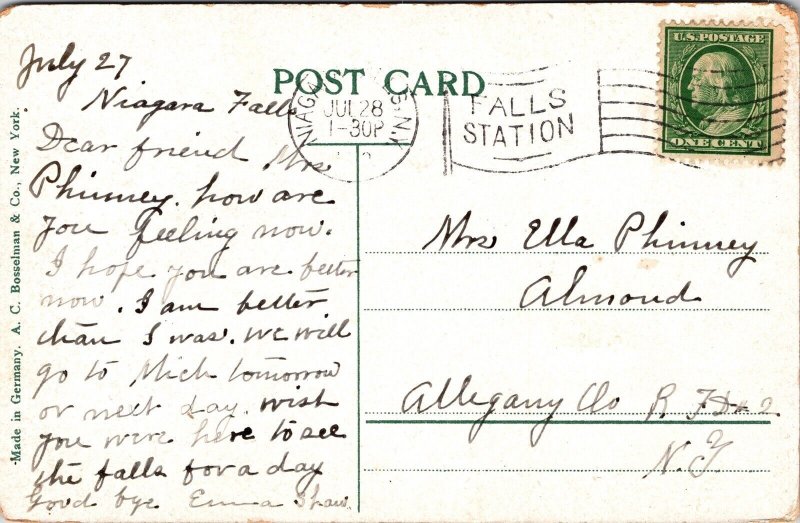 July 27
Niagara Falls
Dear friend Mrs
Phinney. how are
you feeling now.
I hope you are better
now. I am better
than I was. we will
go to Mich tomorrow
or next day. wish
you were here to see
the falls for a day
Good bye Emma Shaw.
POST CARD
NIAGA
JUL 28
1-30P
N.Y.
FALLS
STATION
U.S. POSTAGE
ONE CENT
Mrs Ella Phinney
Almond
Allegany Co R. F D # 2
N.Y.
Made in Germany. A. C. Bosselman & Co., New York.